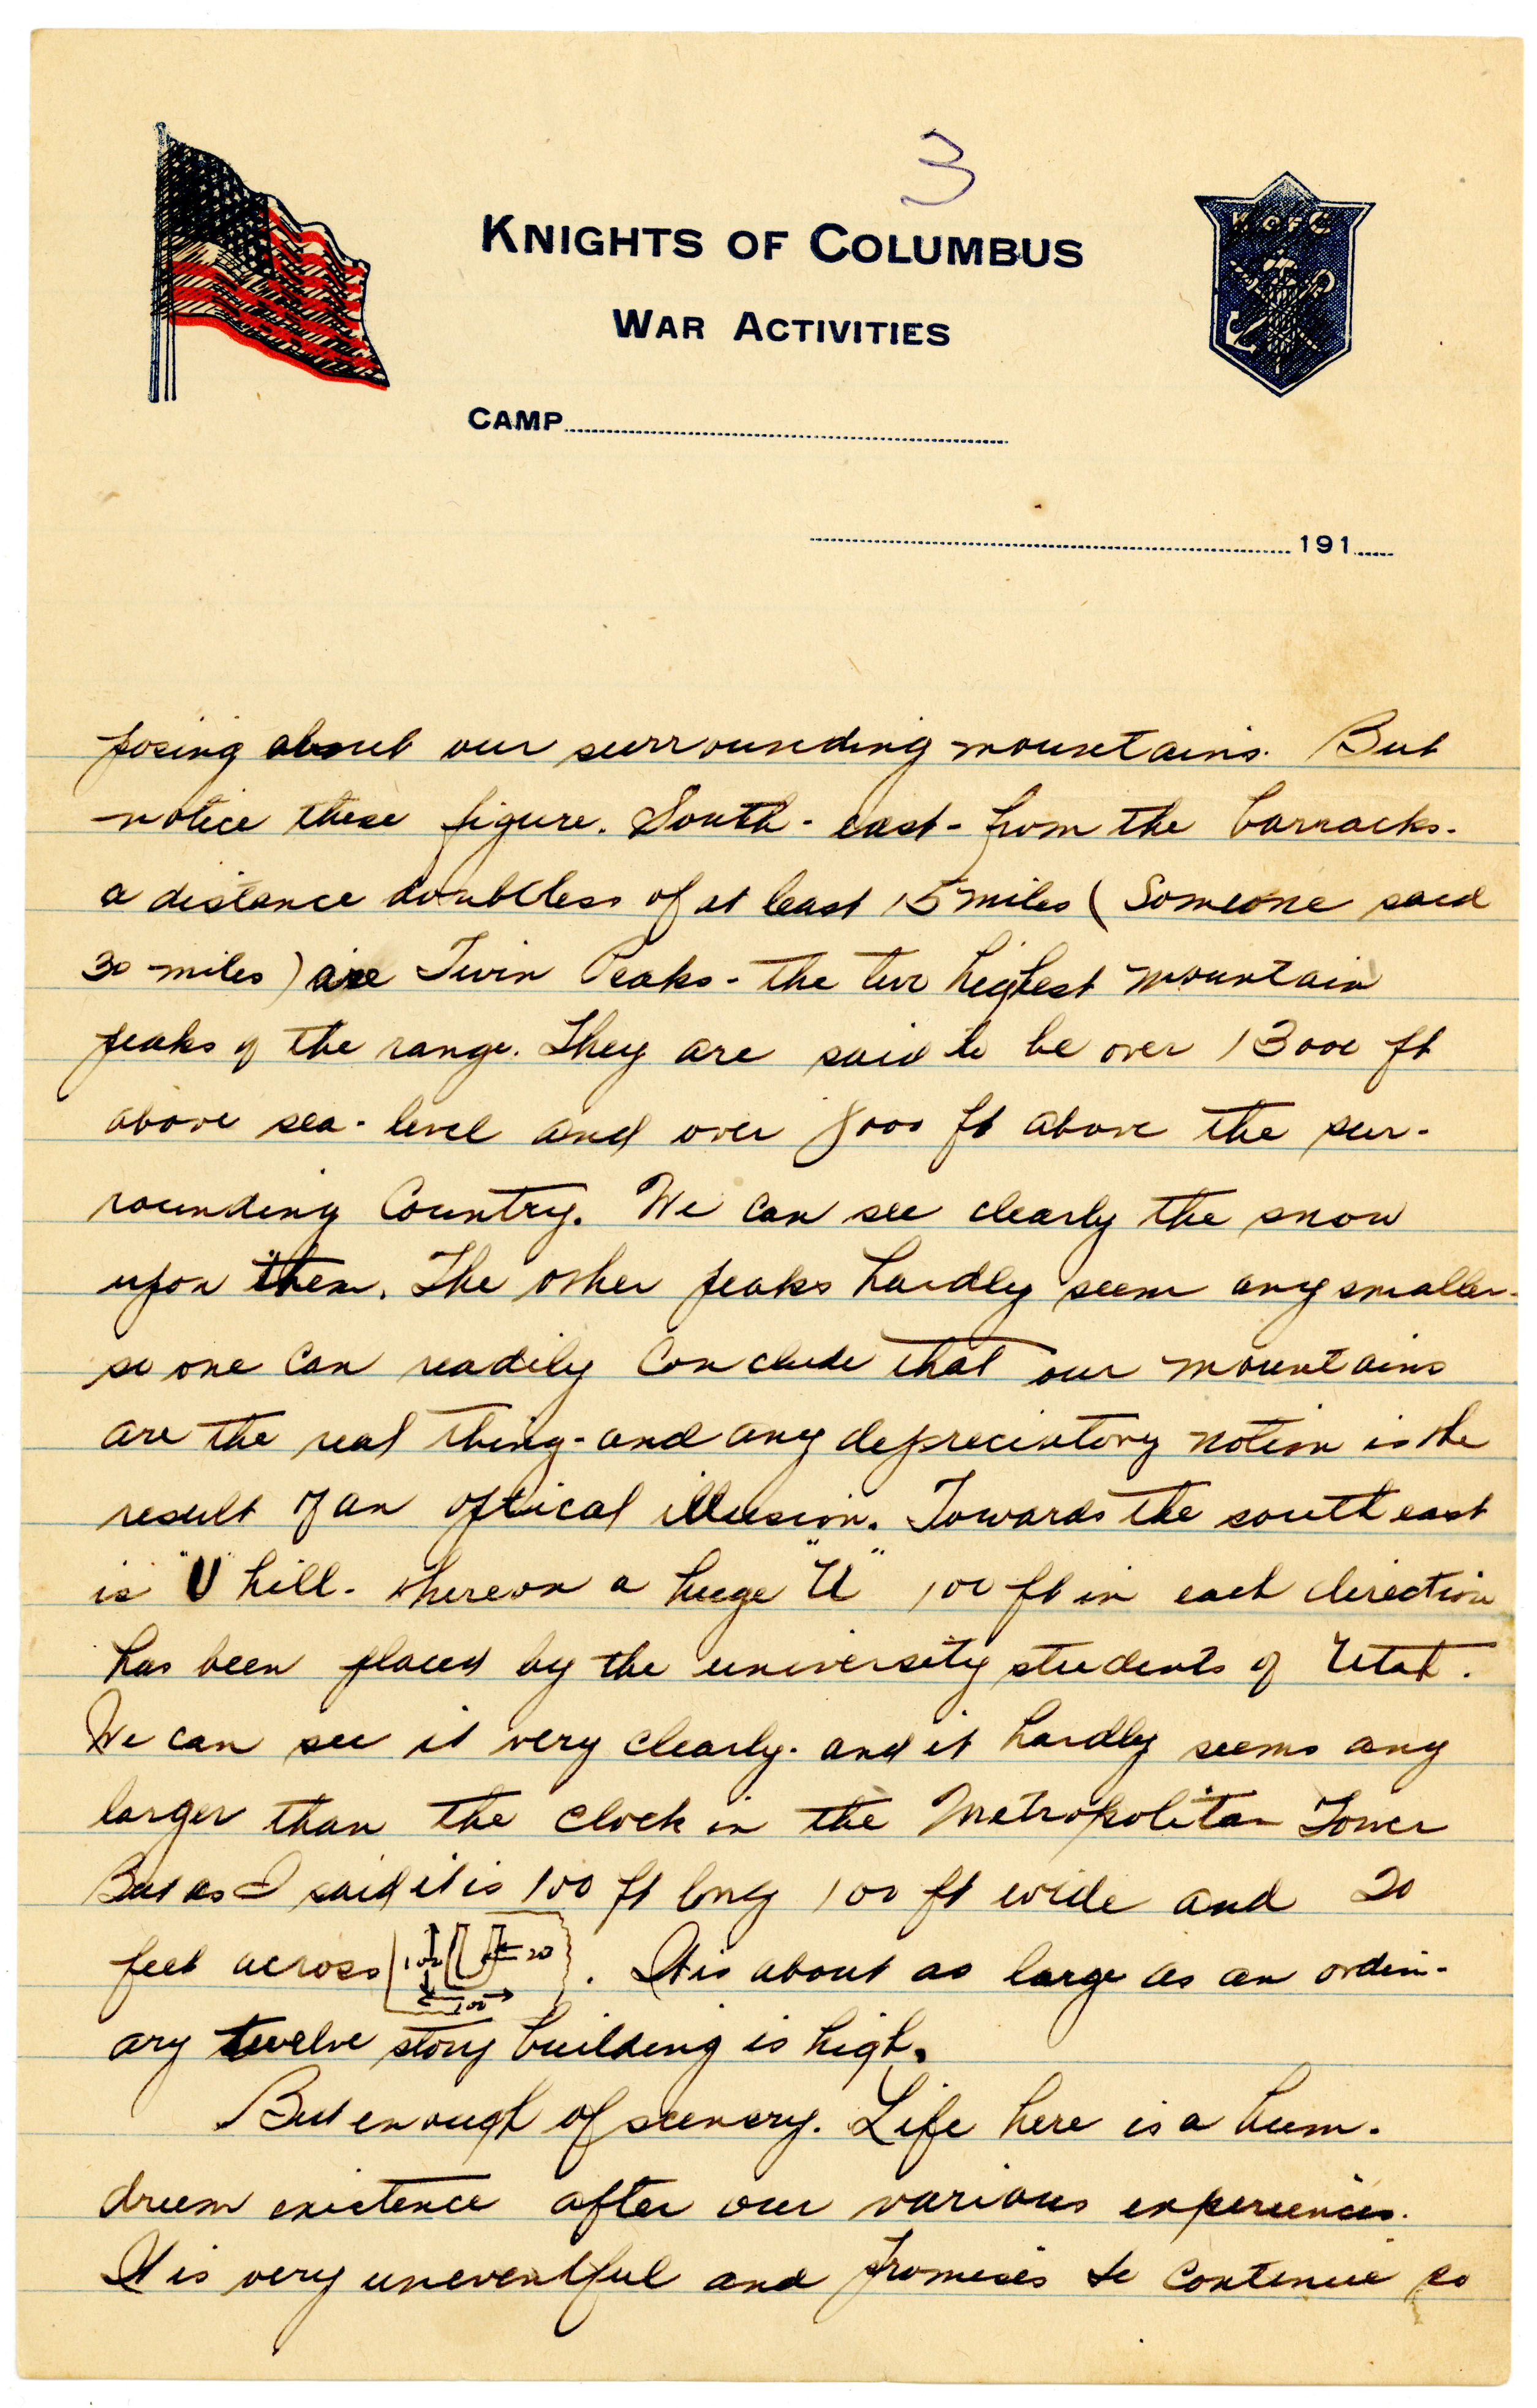 3
KNIGHTS OF COLUMBUS
WAR ACTIVITIES
K OF C
CAMP
191
posing about our surrounding mountains. But
notice these figure. South-east-from the barracks-
a distance doubtless of at least 15 miles (Someone said
30 miles) are Twin Peaks-the two highest mountain
peaks of the range. They are said to be over 13000 ft
above sea-level and over 8000 ft above the sur-
rounding Country. We can see clearly the snow
upon them. The other peaks hardly seem any smaller-
so one can readily conclude that our mountains
are the real thing-and any depreciatory notion is the
result of an optical illusion. Towards the south east
is "U" hill- whereon a huge "U" 100 ft in each direction
has been placed by the university students of Utah.
We can see it very clearly-and it hardly seems any
larger than the clock in the Metropolitan Tower
But as I said it is 100 ft long 100 ft wide and 20
feet across 100 20 100. It is about as large as an ordin-
ary twelve story building is high.
But enough of scenery. Life here is a hum-
drum existence after our various experiences.
It is very uneventful and promises to continue so